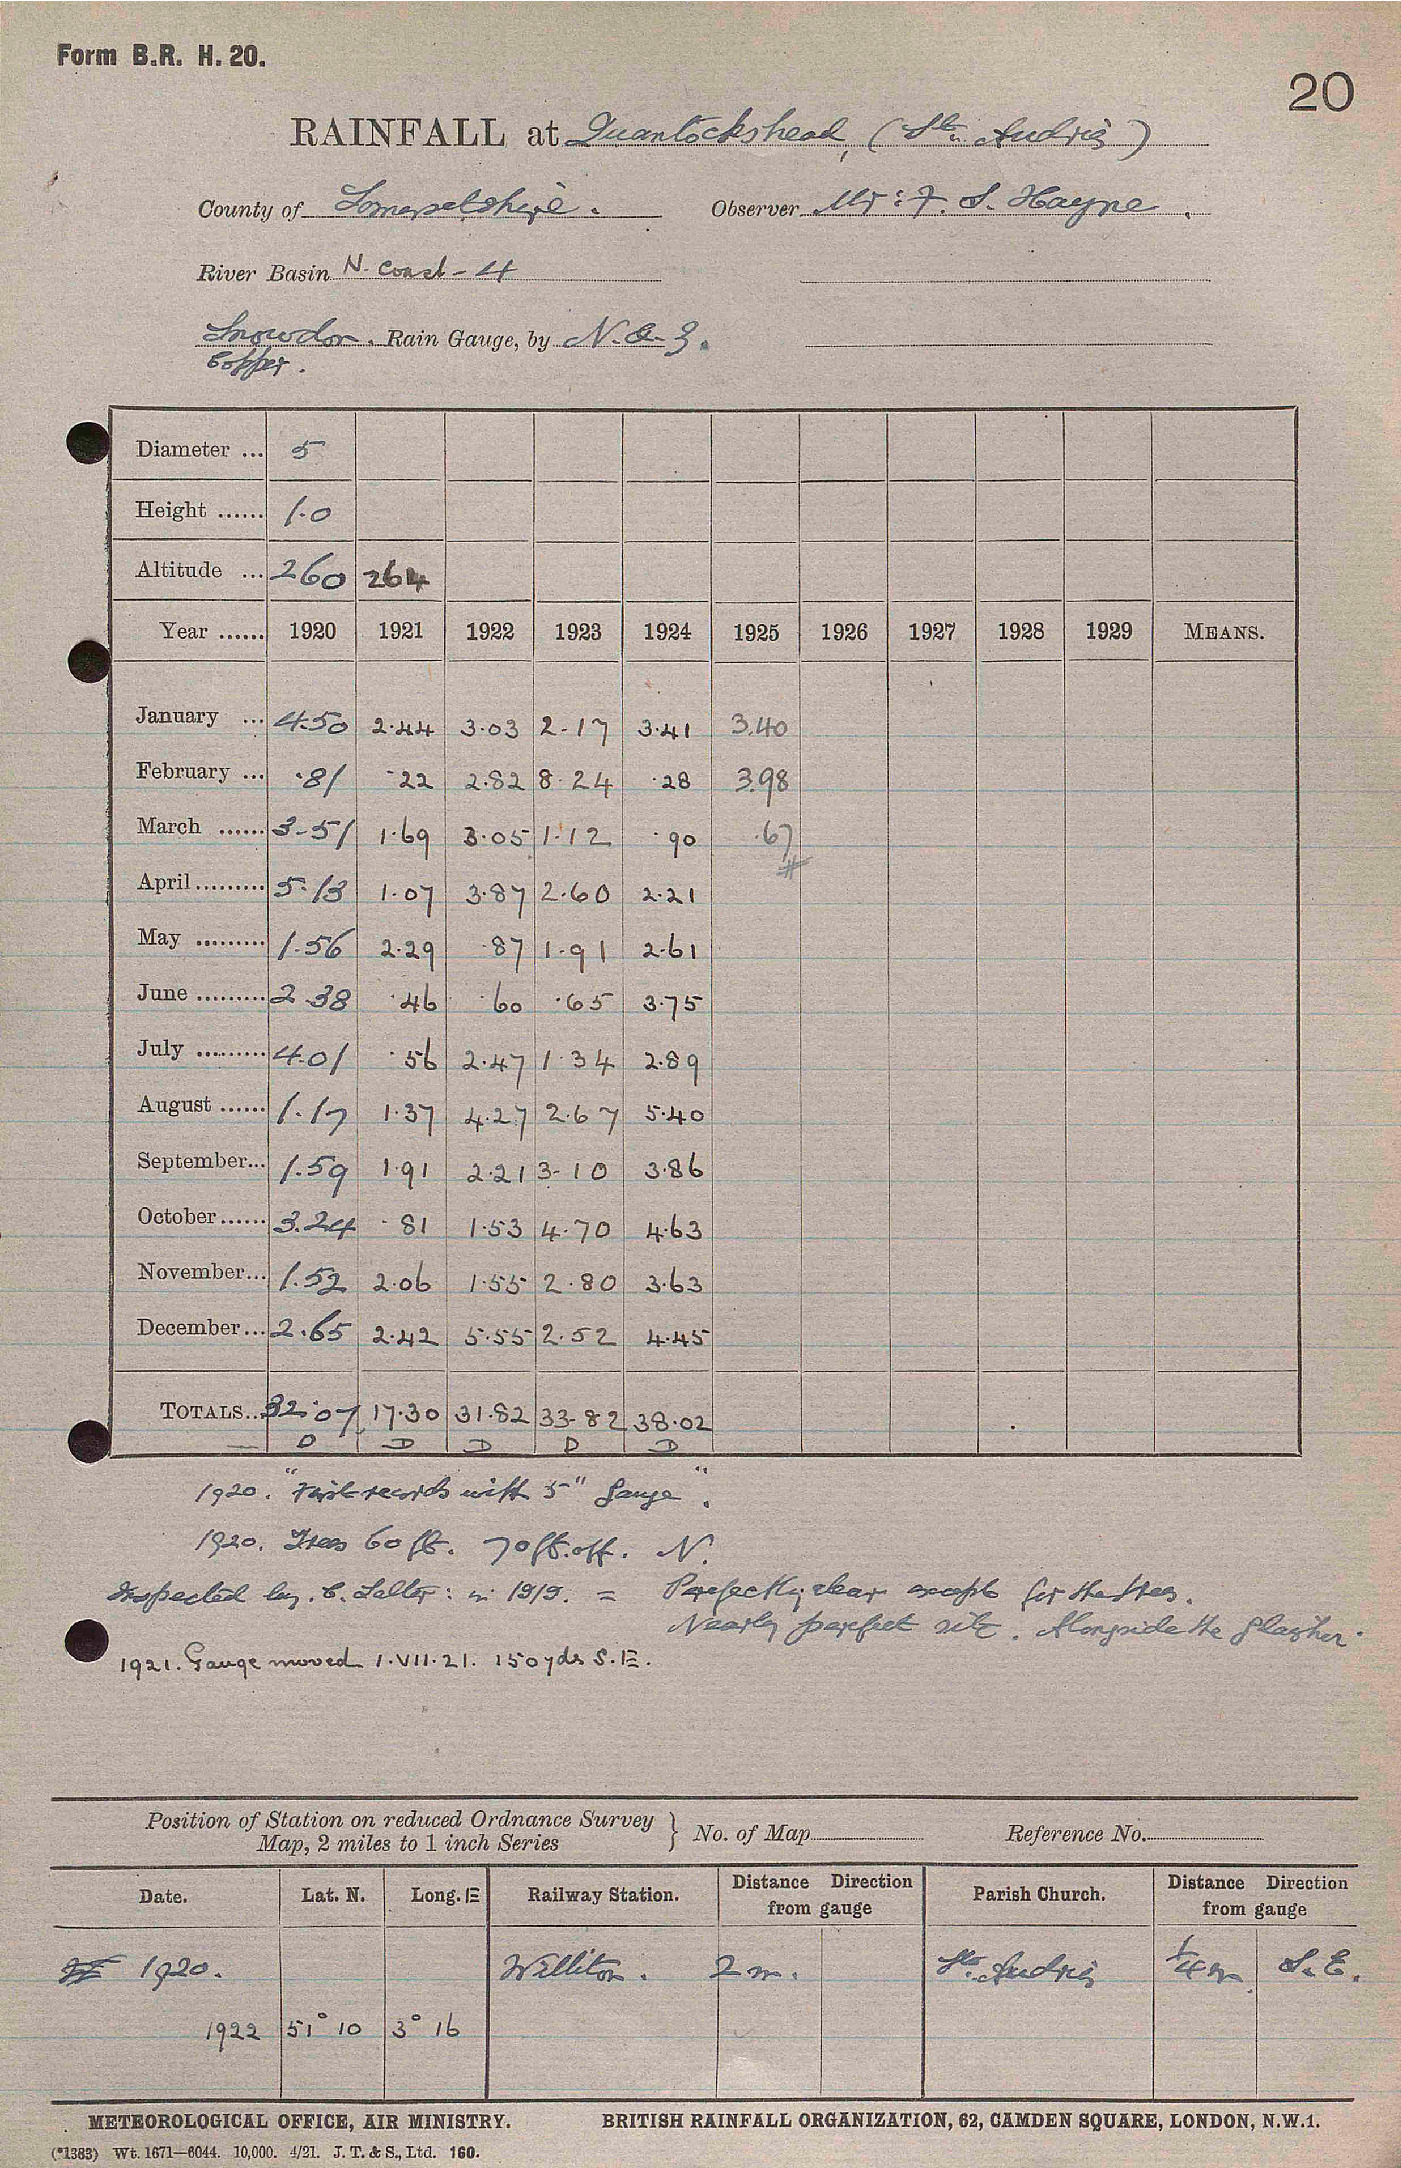 Form B.R. H. 20.
20
RAINFALL at Quantockshead, (St. Audries)
County of Somersetshire. Observer Mr: F. S. Hayne.
River Basin N. Coast - 4
Snowdon. Rain Gauge, by N. & Z.
Copper.
Diameter ... 5
Height ...... 1.0
Altitude ... 260 264
Year ...... 1920 1921 1922 1923 1924 1925 1926 1927 1928 1929 MEANS.
January ... 4.50 2.44 3.03 2.17 3.41 3.40
February ... .81 .22 2.82 8.24 .28 3.98
March ...... 3.51 1.69 3.05 1.12 .90 .67
April ......... 5.13 1.07 3.87 2.60 2.21
May ......... 1.56 2.29 .87 1.91 2.61
June ......... 2.38 .46 .60 .65 3.75
July ......... 4.01 .56 2.47 1.34 2.89
August ...... 1.17 1.37 4.27 2.67 5.40
September... 1.59 1.91 2.21 3.10 3.86
October ...... 3.24 .81 1.53 4.70 4.63
November... 1.52 2.06 1.55 2.80 3.63
December... 2.65 2.42 5.55 2.52 4.45
TOTALS... 32.07 17.30 31.82 33.82 38.02
D D D D D
1920. "First records with 5" gauge".
1920. Trees 60 ft. 70 ft. off. N.
Inspected by C. Salter: in 1919. = Perfectly clear except for the trees.
Nearly perfect site. Alongside the Glaisher.
1921. Gauge moved 1.VII.21. 150 yds S.E.
Position of Station on reduced Ordnance Survey
Map, 2 miles to 1 inch Series } No. of Map Reference No.
Date. Lat. N. Long. E Railway Station. Distance Direction from gauge Parish Church. Distance Direction from gauge
1920. Williton. 2 m. St. Audries 1/4 m S.E.
1922 51° 10 3° 16
METEOROLOGICAL OFFICE, AIR MINISTRY. BRITISH RAINFALL ORGANIZATION, 62, CAMDEN SQUARE, LONDON, N.W.1.
(*1383) Wt. 1671—6044. 10,000. 4/21. J. T. & S., Ltd. 160.